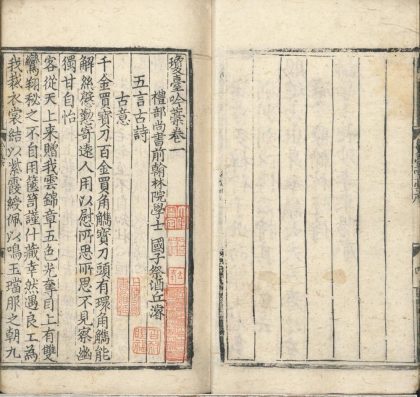 瓊臺吟藁卷一
禮部尚書前翰林院學士 國子祭酒丘濬
五言古詩
古意
千金買寶刀百金買角觿寶刀頭有環角觿能
解絲繫寄遠人用以慰所思所思不見察幽
獨甘自怡
客從天上來贈我雲錦章五色光奪目上有雙
鸞翔秘之不自用篋笥謹什藏幸然遇良工為
我裁衣裳結以紫霞綬佩以鳴玉璫那之朝九